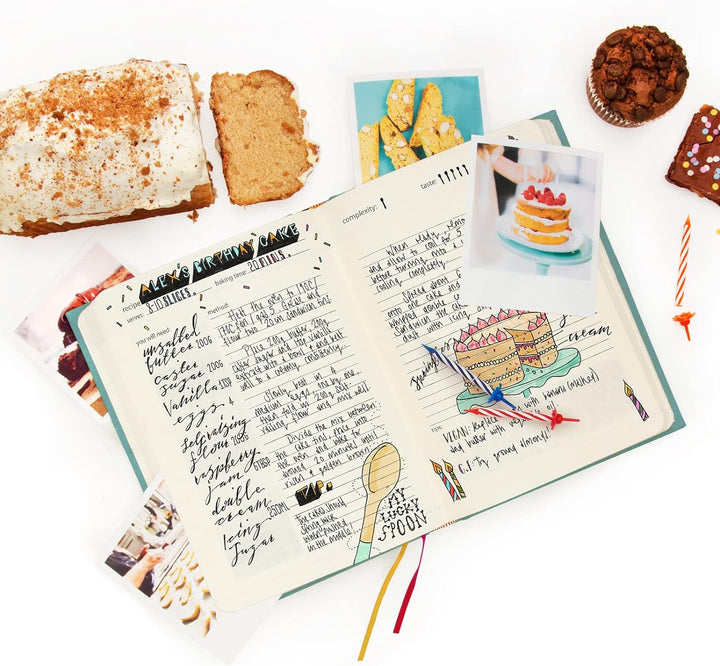 recipe: ALEX'S BIRTHDAY CAKE
serves: 8-10 SLICES baking time: 20 MINS
you will need:
unsalted
butter 200G
caster
sugar 200G
Vanilla 1TSP
eggs 4
self raising
flour 200G
raspberry
jam 6TBSP
double
cream 250ML
Icing
Sugar
method:
Heat the oven to 190C/
170C fan/gas 5. Grease and
flour two 20cm sandwich tins.
Place 200g butter, 200g
caster sugar and the vanilla
extract into a bowl & beat
well to a creamy consistency.
Slowly beat in 4
medium eggs, one by one,
then fold in 200g self
raising flour and mix well
Divide the mix between
the cake tins, place into
the oven and bake for
around 20 minutes until
risen & golden brown
TIP:
The cakes should
spring back
when pushed
in the middle!
MY
LUCKY
SPOON
complexity:
taste:
When ready, remo
and allow to cool for 5
before turning into a
cooling completely.
Spread about 6
onto one cake and
whipped double c
Sandwich the ca
dust with icing
cream
tips:
VEGAN: Replace with banana (mashed)
and butter with vegetable oil
G.F: Try ground almond!